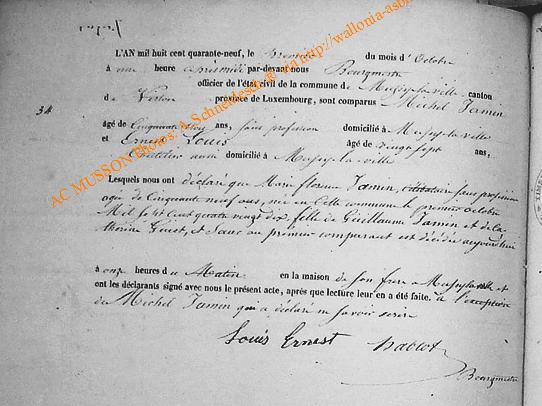 Jamin
L'AN mil huit cent quarante-neuf, le Premier du mois d'Octobre
à une heure après midi par-devant nous Bourgmestre
officier de l'état civil de la commune de Mussy-la-ville canton
34
de Virton province de Luxembourg, sont comparus Michel Jamin
âgé de Cinquante ans, sans profession domicilié à Mussy-la-ville
et Ernest Louis âgé de vingt sept ans,
aussi domicilié à Mussy-la-ville
Lesquels nous ont déclaré que Marie florence Jamin, sans profession
agée de Cinquante neuf ans, née en cette commune le premier octobre
Mil sept cent quatre vingt dix, fille de Guillaume Jamin et de Ca-
therine Guiot, et Sœur au premier comparant est décédée aujourd'hui
à onze heures du Matin en la maison de son frere à Mussy-la-ville et
ont les déclarants signé avec nous le présent acte, après que lecture leur en a été faite. à l'exception
de Michel Jamin qui a déclaré ne savoir écrire
Louis Ernest
Bourgmestre
AC MUSSON Photos: A Schneidesch & via http://wallonia-asbl